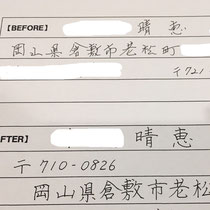 【BEFORE】 晴恵
岡山県倉敷市老松町
〒721
AFTER】 晴恵
〒710-0826
岡山県倉敷市老松